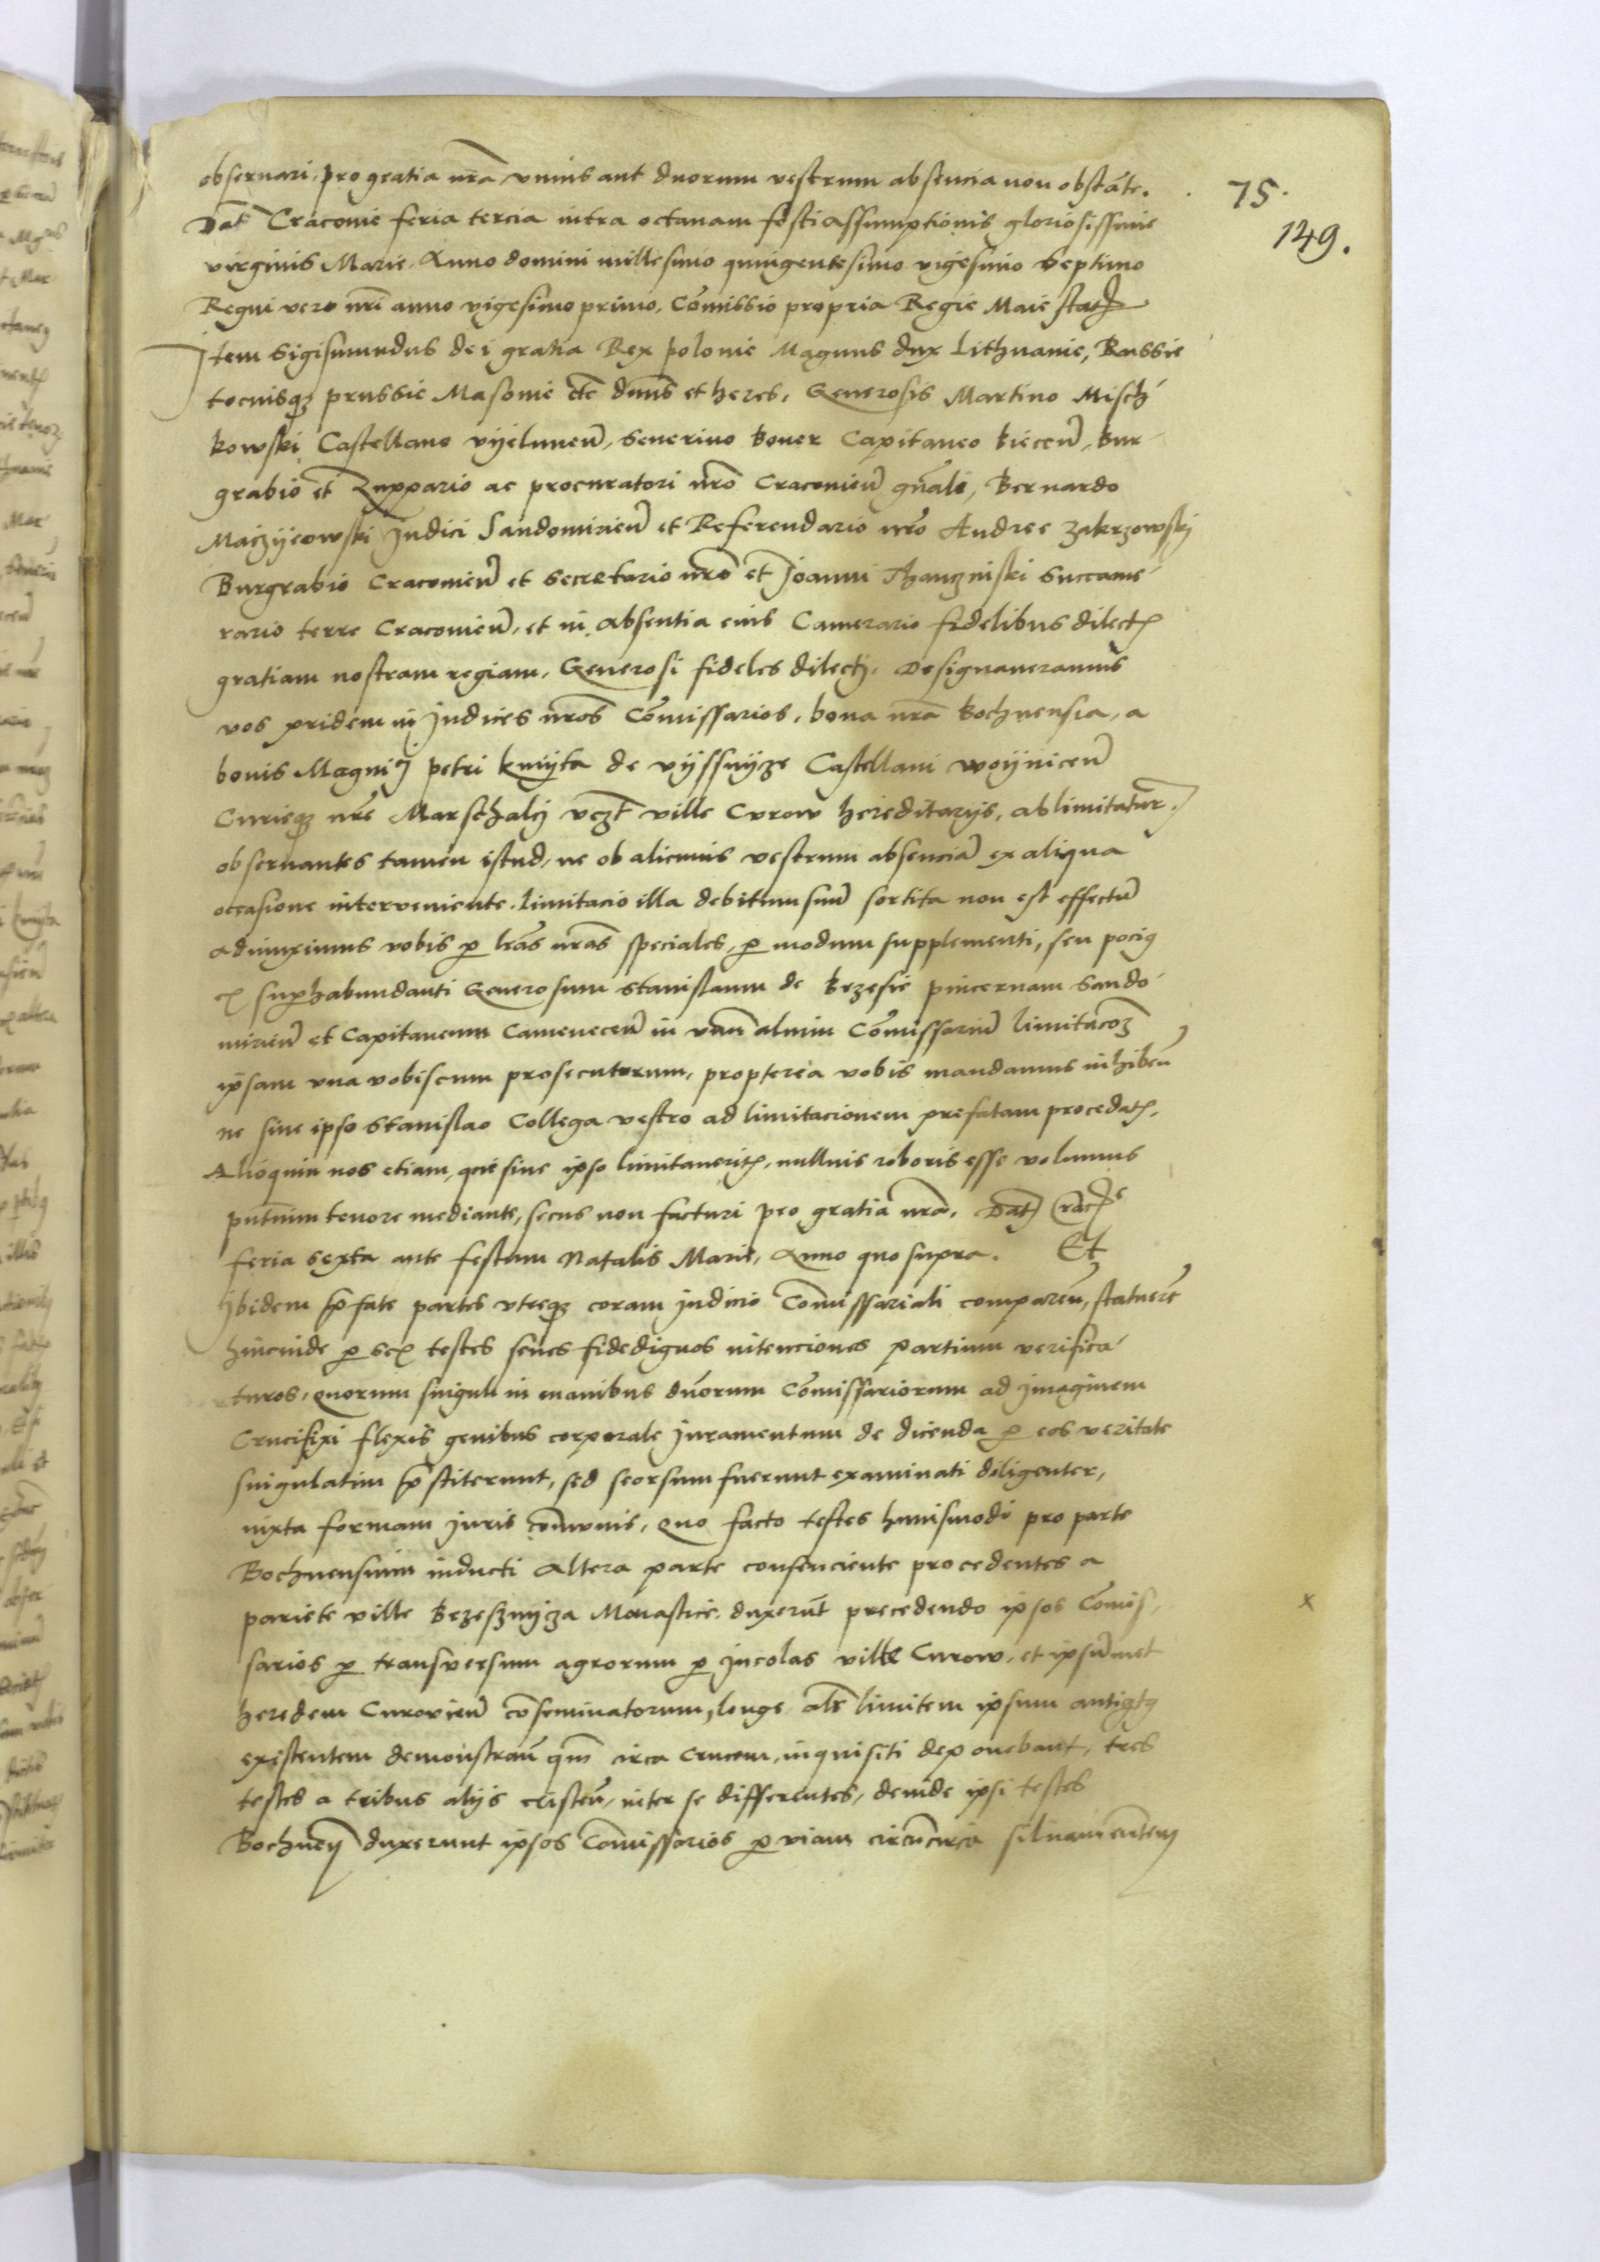 observari, pro gratia nrã vnius aut duorum vestrum absencia non obstãte.
75.
149.
Dat Cracovie feria tercia intra octavam festi assumptionis gloriosissime
virginis Marie Anno domini millesimo quingentesimo vigesimo septimo
Regni vero nri anno vigesimo primo. Comissio propria Regie Maiestat
Item Sigismundus dei gratia Rex polonie Magnus dux Lithuanie, Russie
tociusqz prussie Masovie etc dnus et heres, Generosis Martino Misch
kowski Castellano vyelunen, Severino boner Capitaneo biecen, bur
grabio et Zuppario ac procuratori nro Cracovien gnali, Bernardo
Maczyeowski Judici Sandomirien et Referendario nro Andree zakrzowskj
Burgrabio Cracovien et secretario nro et Joanni Thanczinski Succame
rario terre Cracovien, et in absentia eius Camerario fidelibus dilect
gratiam nostram regiam, Generosi fideles dilectj. Designaveramus
vos pridem in Judices nros Comissarios, bona nra bochnensia, a
bonis Magnici petri kmyta de vyssnyze Castellani woynicen
Curieqz nre Marschalcj vczt ville Curow hereditarijs, ablimitatur
observantes tamen istud, ne ob alicuius vestrum absencia ex aliqua
occasione interveniente. limitacio illa debitum suu sortita non est effectu
adiunximus vobis p lras nras speciales, p modum supplementi, seu pociq
superhabundanti Generosum Stanislaum de brzesie pincernam Sando
mirien et Capitaneum Camenecen in vnu alium Comissariu limitacoz
ipsam vna vobiscum prosecuturum, propterea vobis mandamus inhiben
ne sine ipso Stanislao Collega vestro ad limitacionem prefatam procedat,
Alioquin nos etiam, que sine ipso limitaverit, nullius roboris esse volumus
pntium tenore mediante, secus non facturi pro gratia nra. Dat Crac
feria sexta ante festum Natalis Marie, Anno quo supra. Et
Ibidem pfate partes vtreqz coram Judicio Comissariali comparen, statuere
hincinde p sex testes senes fidedignos intenciones partium verifica
turos, quorum singuli in manibus dnorum Comissariorum ad imaginem
Crucifixi flexis genibus corporale Juramentum de dicenda p eos veritate
singulatim pstiterunt, sed seorsum fuerunt examinati diligenter,
iuxta formam Juris comunis, quo facto testes huiusmodi pro parte
Bochnensium inducti altera parte consenciente procedentes a
pariete ville brzesznyza Monastice. duxerut precedendo ipsos Comis
x
sarios p transversum agrorum p Jncolas ville Curow, et ipsumet
heredem Curovien coseminatorum, longe als limitem ipsum antiqtq
existentem demonstrau qm circa Crucem, inquisiti deponebant, tres
testes a tribus alijs existen, inter se differentes, deinde ipsi testes
Bochnen duxerunt ipsos Comissarios p viam circucirca silvam eutem